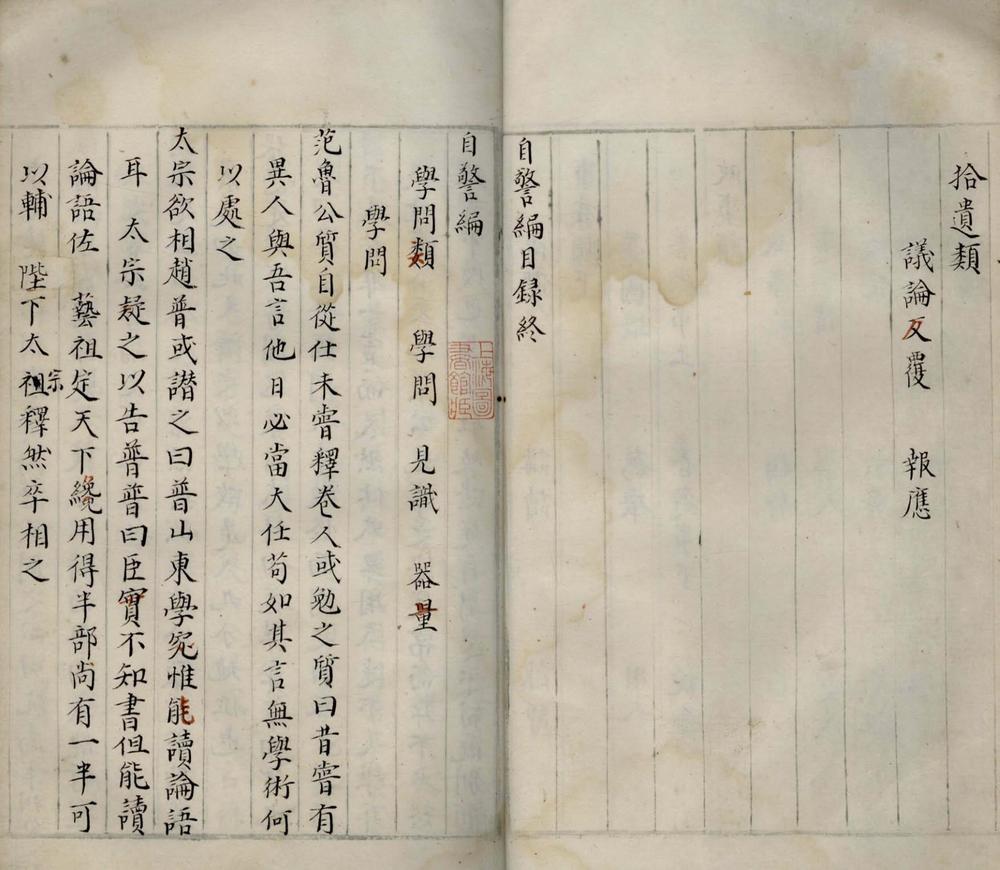 拾遺類
議論反覆　報應
自警編目録終
自警編
學問類　學問　見識　器量
學問
范魯公質自從仕未嘗釋卷人或勉之質曰昔嘗有
異人與吾言他日必當大任苟如其言無學術何
以處之
太宗欲相趙普或譖之曰普山東學究惟能讀論語
耳　太宗疑之以告普普曰臣實不知書但能讀
論語佐　藝祖定天下纔用得半部尚有一半可
以輔　陛下太祖宗釋然卒相之
上海圖書館藏